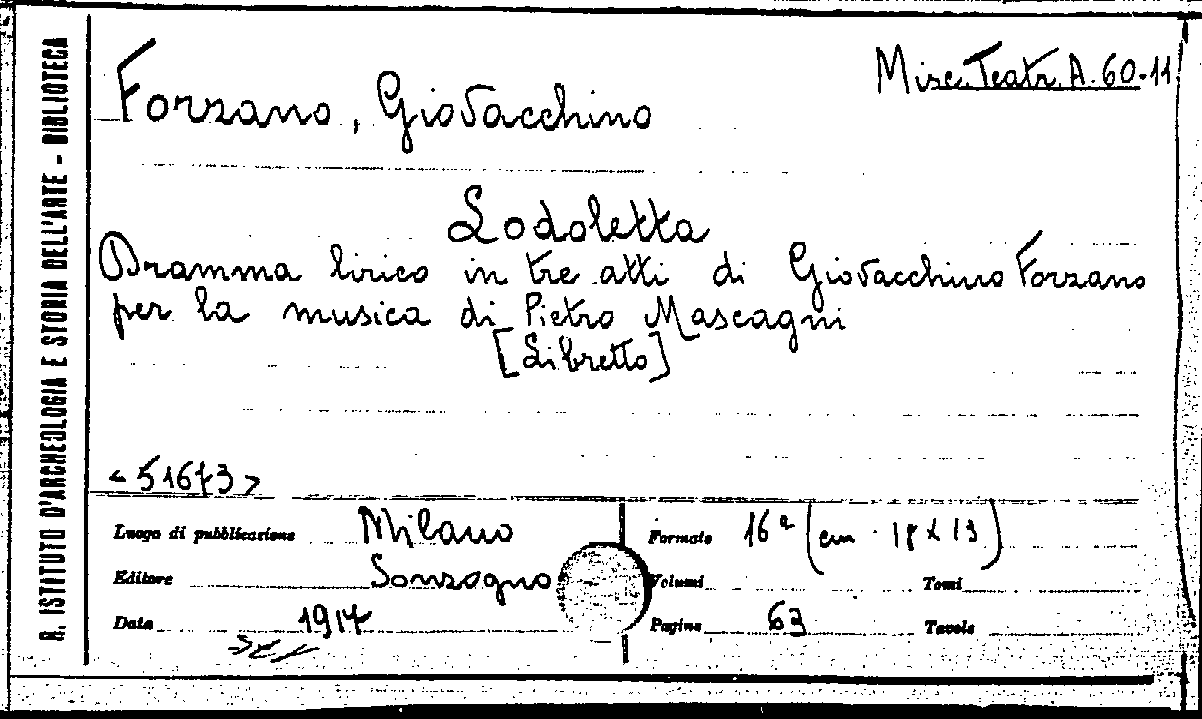 R. ISTITUTO D'ARCHEOLOGIA E STORIA DELL'ARTE - BIBLIOTECA
Misc. Teatr. A. 60.11
Forzano, Giovacchino
Lodoletta
Dramma lirico in tre atti di Giovacchino Forzano
per la musica di Pietro Mascagni
[Libretto]
<51673>
Luogo di pubblicazione Milano
Editore Sonzogno
Data 1917
Formato 16° (cm. 18 x 13)
Volumi Tomi
Pagine 63 Tavole